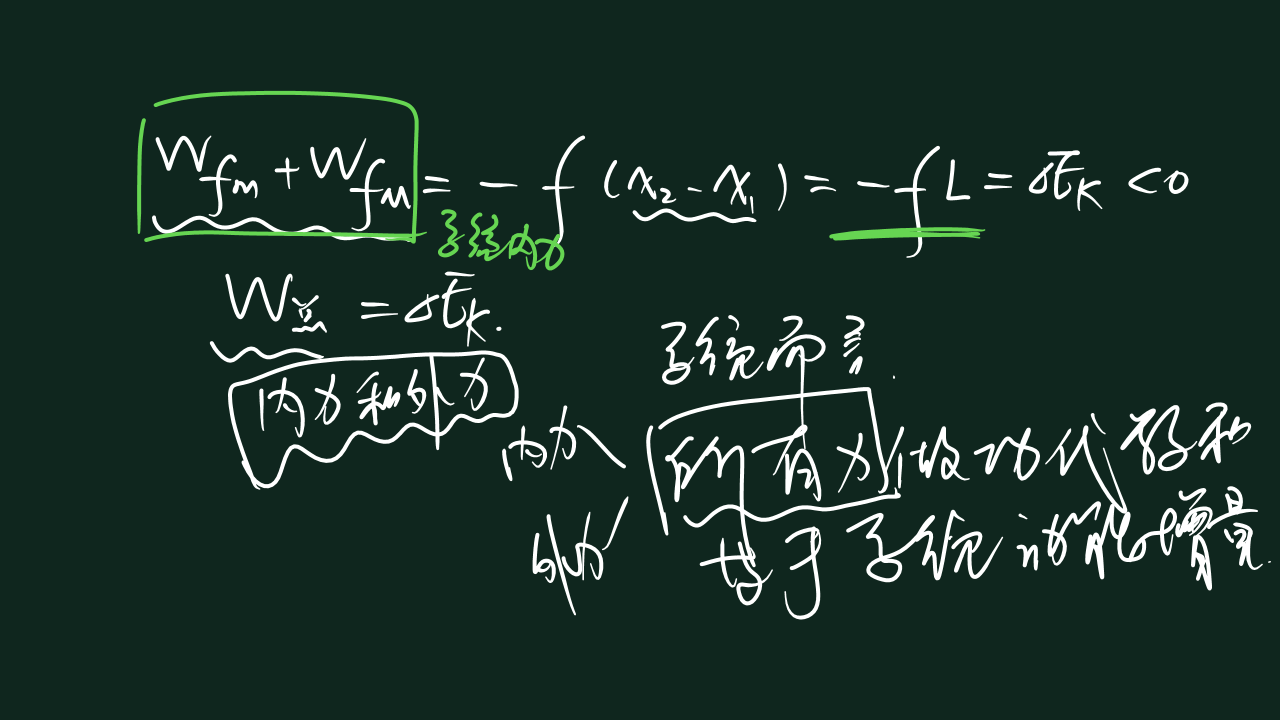 W_fm + W_fM = - f (x₂ - x₁) = - f L = ΔE_K < 0
系统内力
W总 = ΔE_K.
系统而言.
内力和外力
内力 所有力做功代数和
外力 等于系统动能增量.